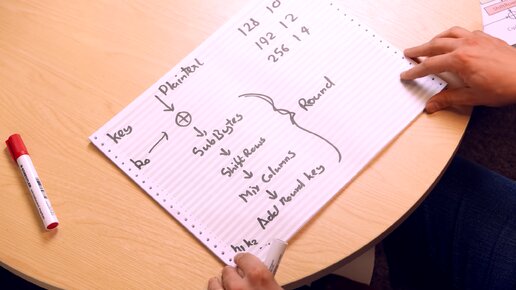 128 10
192 12
256 14
Plaintext
key
k₀
⊕
SubBytes
Shift Rows
Mix Columns
Add round key
Round
k₁ k₂